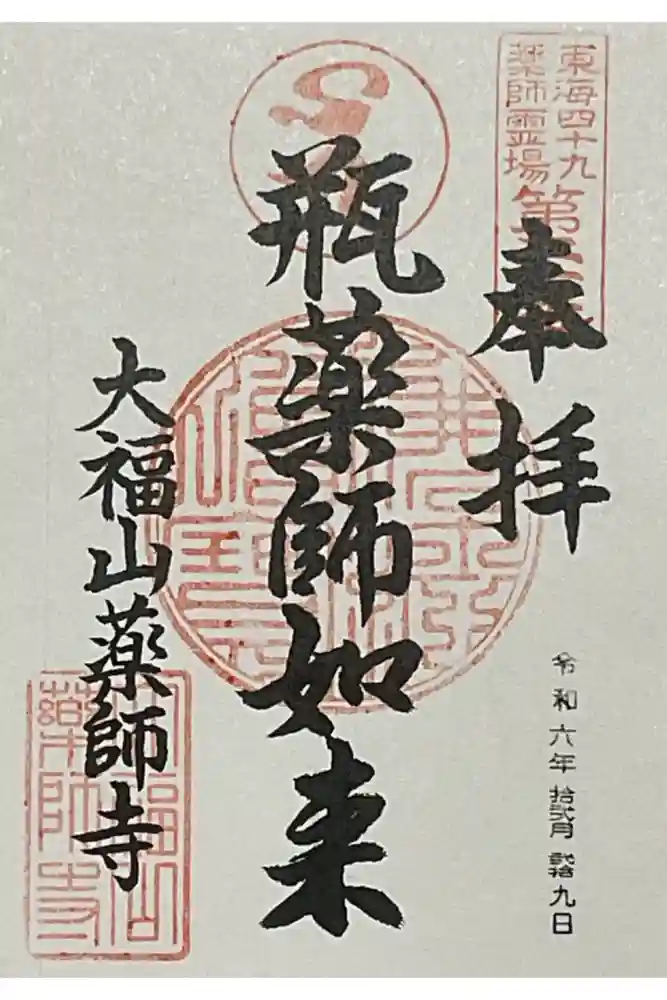 東海四十九
薬師霊場第
奉拝
瓶薬師如来
大福山薬師寺
令和六年拾弐月弐拾九日
大福山
藥師寺